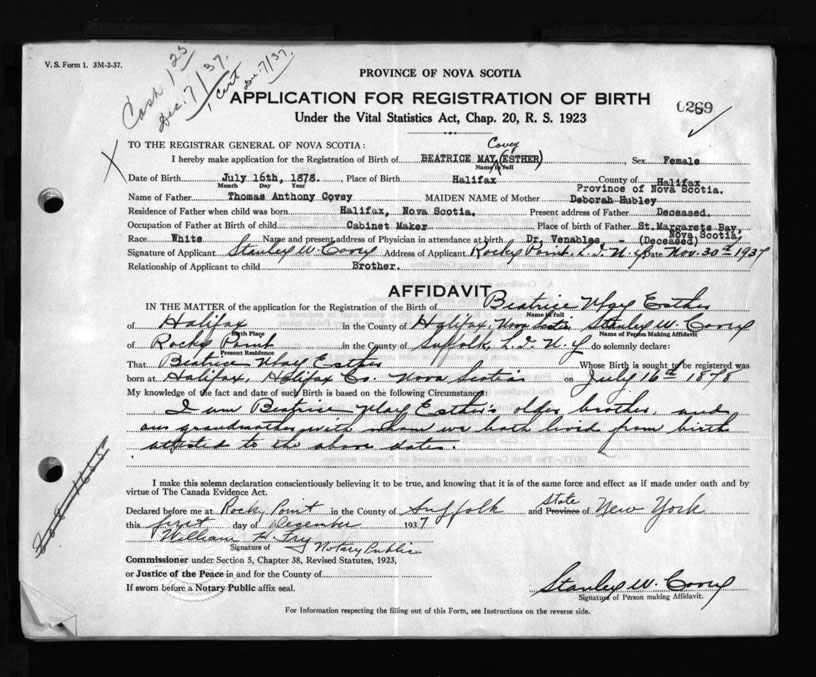 V. S. Form 1. 3M-2-37.
Cash 1 25
Dec. 7/37.
1 Cert
Dec. 7/37.
PROVINCE OF NOVA SCOTIA
APPLICATION FOR REGISTRATION OF BIRTH
0269
Under the Vital Statistics Act, Chap. 20, R. S. 1923
TO THE REGISTRAR GENERAL OF NOVA SCOTIA:
Covey
I hereby make application for the Registration of Birth of BEATRICE MAY (ESTHER), Sex Female
Name in full
Date of Birth July 16th, 1878. Place of Birth Halifax County of Halifax
Month Day Year
Province of Nova Scotia.
Name of Father Thomas Anthony Covey MAIDEN NAME of Mother Deborah Hubley
Residence of Father when child was born Halifax, Nova Scotia. Present address of Father Deceased.
Occupation of Father at Birth of child Cabinet Maker Place of birth of Father St. Margarets Bay,
Nova Scotia.
Race White Name and present address of Physician in attendance at birth Dr. Venables - (Deceased)
Signature of Applicant Stanley W. Covey Address of Applicant Rocky Point, L. I. N. Y. Date Nov. 30th 1937
Relationship of Applicant to child Brother.
AFFIDAVIT
IN THE MATTER of the application for the Registration of the Birth of Beatrice May Esther
Name in full
of Halifax in the County of Halifax, Nova Scotia Stanley W. Covey
Birth Place Name of Person Making Affidavit
of Rocky Point in the County of Suffolk, L. I. N. Y do solemnly declare:
Present Residence
That Beatrice May Esther Whose Birth is sought to be registered was
born at Halifax, Halifax Co. Nova Scotia on July 16th 1878
My knowledge of the fact and date of such Birth is based on the following Circumstances:
I am Beatrice May Esther's older brother and
our grandmother with whom we both lived from birth
attested to the above dates.
I make this solemn declaration conscientiously believing it to be true, and knowing that it is of the same force and effect as if made under oath and by
virtue of The Canada Evidence Act.
State
Declared before me at Rocky Point in the County of Suffolk and Province of New York
this first day of December 1937
William H. Fry
Signature of Notary Public
Commissioner under Section 5, Chapter 38, Revised Statutes, 1923,
or Justice of the Peace in and for the County of
If sworn before a Notary Public affix seal.
Stanley W. Covey
Signature of Person making Affidavit.
For Information respecting the filling out of this Form, see Instructions on the reverse side.